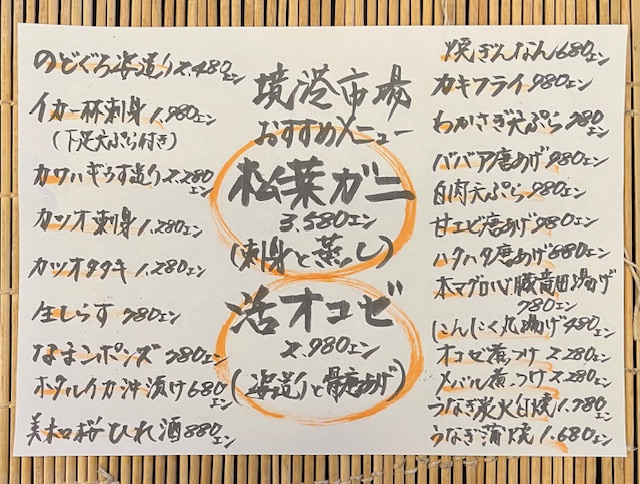 のどぐろ姿造り2.480エン
イカ一杯刺身1.980エン
(下足天ぷら付き)
カワハギうす造り2.280エン
カツオ刺身1.280エン
カツオタタキ1.280エン
生しらす780エン
なまこポンズ780エン
ホタルイカ沖漬け680エン
美和桜ひれ酒880エン
境港市場
おすすめメニュー
松葉ガニ
3.580エン
(刺身と蒸し)
活オコゼ
2.980エン
(姿造りと骨唐あげ)
焼ぎんなん680エン
カキフライ980エン
わかさぎ天ぷら780エン
ババア唐あげ980エン
白肉天ぷら980エン
甘エビ唐あげ980エン
ハタハタ唐あげ880エン
本マグロ心臓竜田湯げ
780エン
にんにく丸揚げ480エン
オコゼ煮つけ2.280エン
メバル煮つけ2.280エン
うなぎ炭火白焼1.780エン
うなぎ蒲焼1.680エン